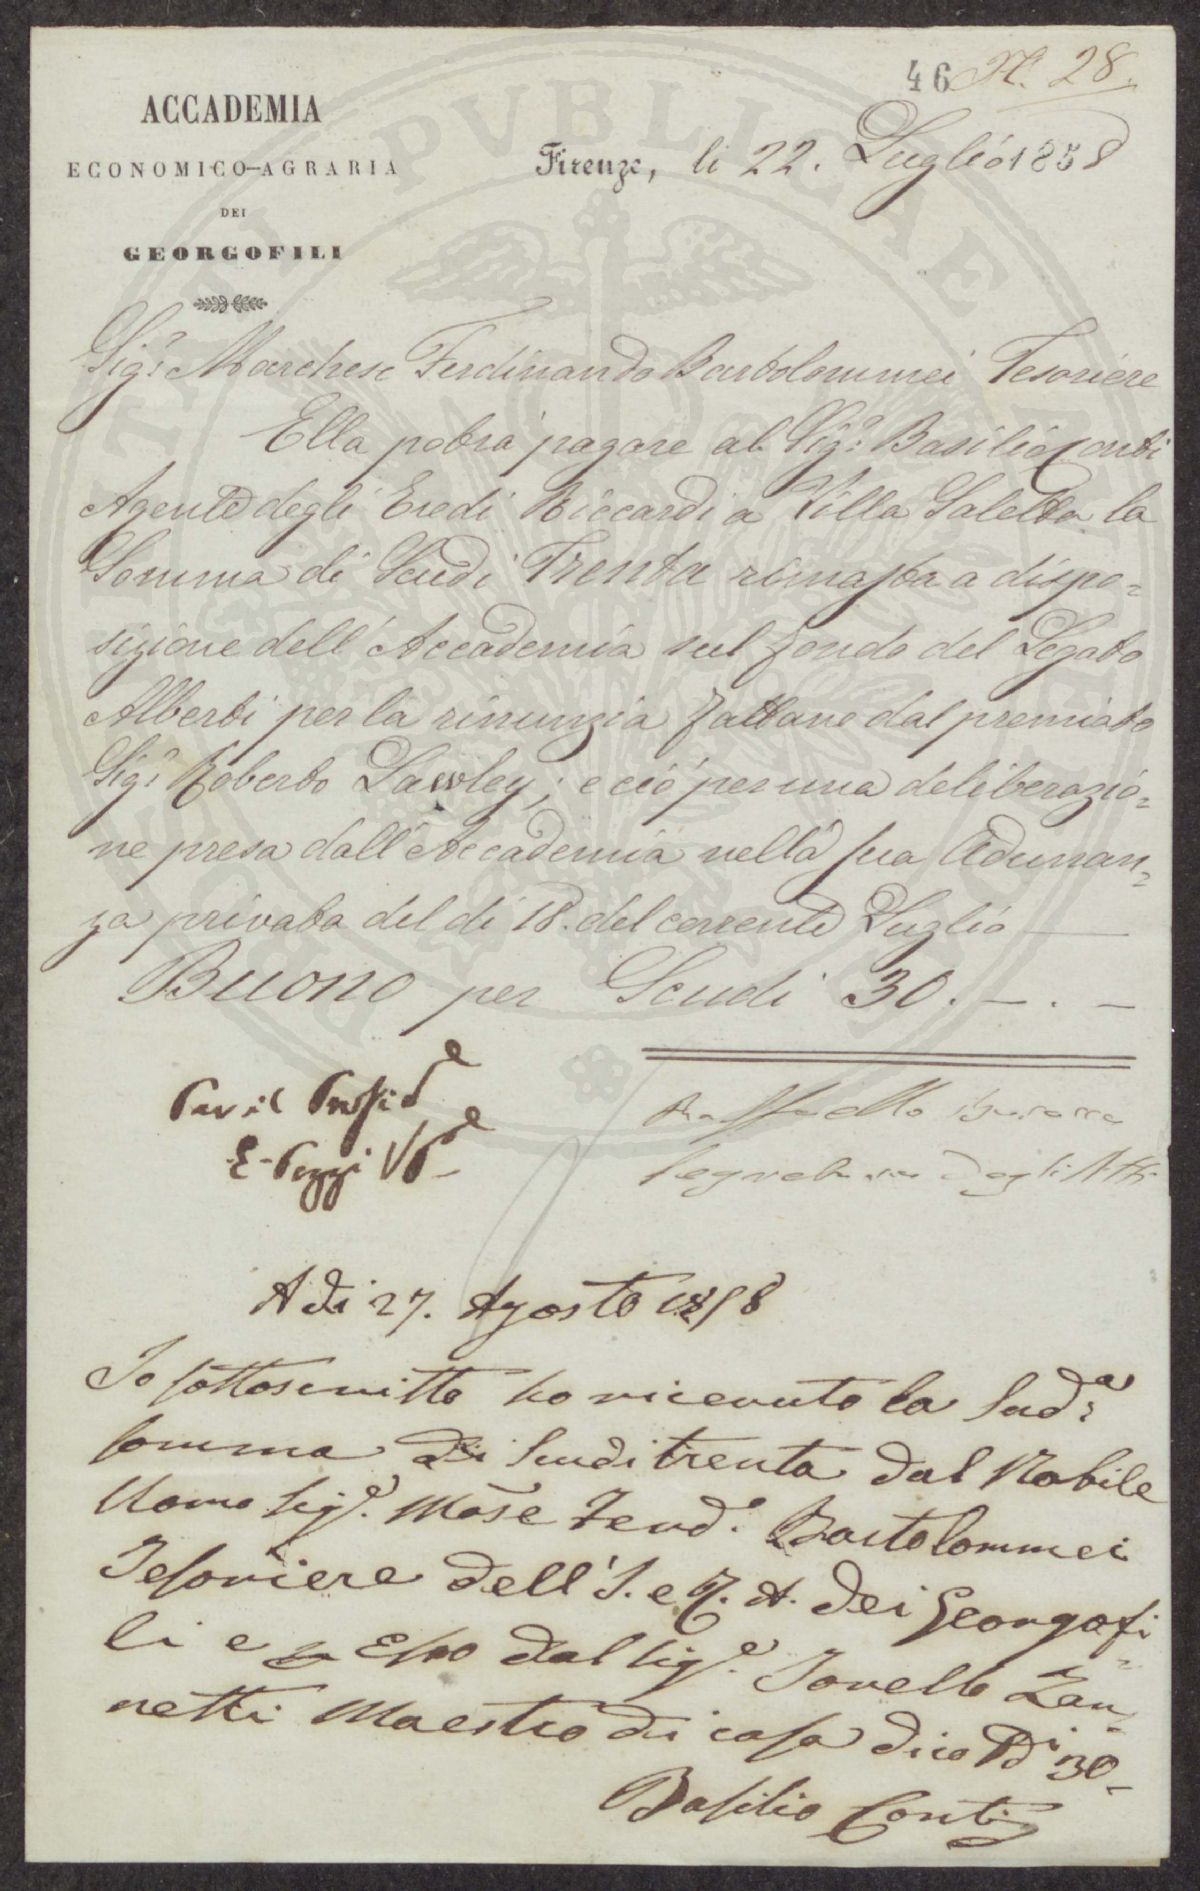 46 N. 28.
ACCADEMIA
ECONOMICO-AGRARIA
DEI
GEORGOFILI
Firenze, li 22. Luglio 1858
Sigr. Marchese Ferdinando Bartolommei Tesoriere
Ella potrà pagare al Sigr. Basilio Conti
Agente degli Eredi Riccardi a Villa Saletta la
Somma di Scudi Trenta rimasta a dispo=
sizione dell'Accademia sul fondo del Legato
Alberti per la rinunzia fattane dal premiato
Sigr. Roberto Lawley; e ciò per una deliberazio=
ne presa dall'Accademia nella sua Adunan=
za privata del dì 18. del corrente Luglio
Buono per Scudi 30. — . —
Per il Presid.e
E. Poggi V. P.e
Raffaello
Segretario degli Atti
A dì 27. Agosto 1858
Io sottoscritto ho ricevuto la Sud.a
somma di Scudi trenta dal Nobile
Uomo Sig.e Mse Ferd. Bartolommei
Tesoriere dell'I. e R. A. dei Georgofi=
li e p Esso dal Sig.e Zan=
netti Maestro di casa dico 30-
Basilio Conti
PUBLICAE UTILITATI